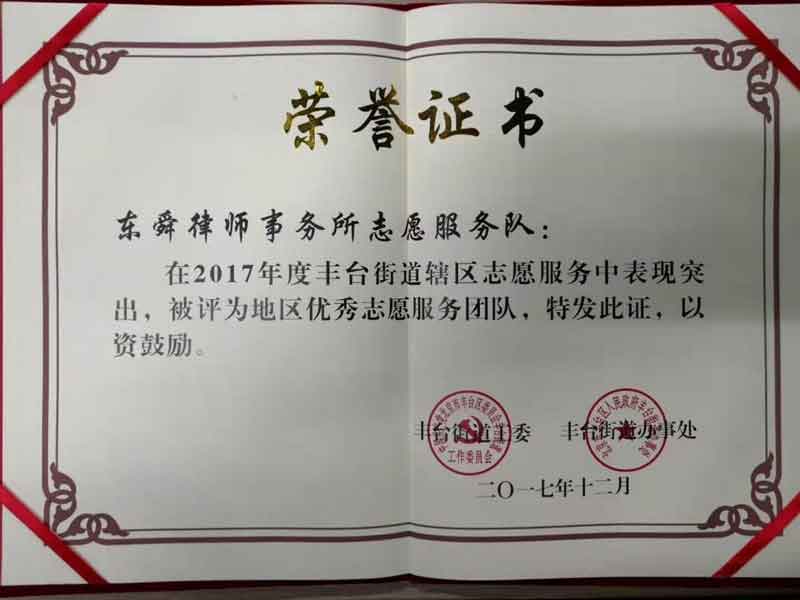 荣誉证书
东舜律师事务所志愿服务队：
在2017年度丰台街道辖区志愿服务中表现突
出，被评为地区优秀志愿服务团队，特发此证，以
资鼓励。
丰台街道工委 丰台街道办事处
工作委员会
二〇一七年十二月